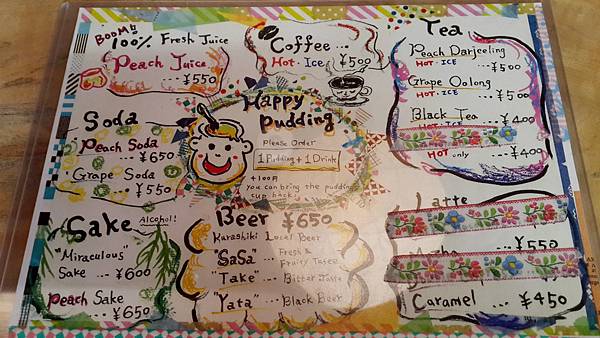 BOOM!!
100% Fresh Juice
Peach Juice
... ¥550
Coffee ...
Hot・Ice ¥500
Tea
Peach Darjeeling
HOT・ICE ...¥500
Grape Oolong
HOT・ICE ...¥500
Black Tea
...¥400
HOT only ...¥400
Happy
Pudding
Please Order
1 Pudding + 1 Drink
+100円
you can bring the pudding
cup back!
Soda
Peach Soda
... ¥650
Grape Soda
... ¥550
Sake Alcohol!
"Miraculous"
Sake ... ¥600
Peach Sake
... ¥650
Beer ¥650
Kurashiki Local Beer
"SaSa" ... Fresh &
Fruity Taste
"Take" ... Bitter Taste
"Yata" ... Black Beer
Latte
... ¥550
Caramel ... ¥450